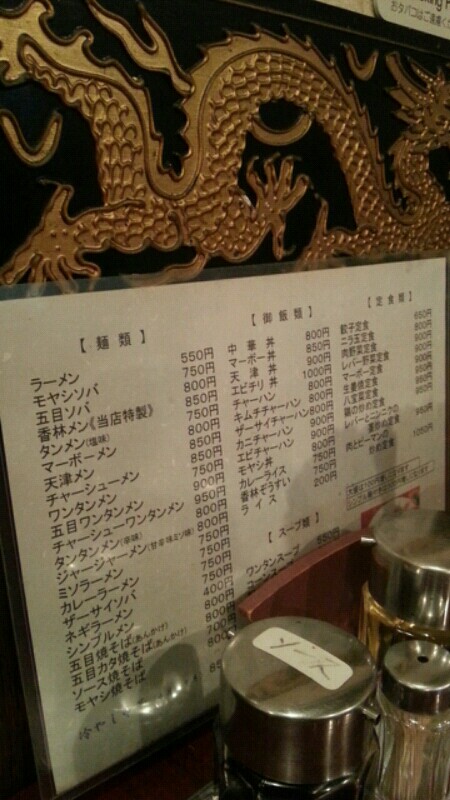 おタバコはご遠慮く
【 麺 類 】
ラーメン 550円
モヤシソバ 750円
五目ソバ 800円
香林メン《当店特製》 850円
タンメン(塩味) 750円
マーボーメン 800円
天津メン 850円
チャーシューメン 850円
ワンタンメン 750円
五目ワンタンメン 900円
チャーシューワンタンメン 950円
タンタンメン(辛味) 800円
ジャージャーメン(甘辛味ミソ味) 800円
ミソラーメン 750円
カレーラーメン 750円
ザーサイソバ 750円
ネギラーメン 750円
シンプルメン 400円
五目焼そば(あんかけ) 800円
五目カタ焼そば(あんかけ) 800円
ソース焼そば 700円
モヤシ焼そば
【 御 飯 類 】
中 華 丼 800円
マーボー丼 850円
天 津 丼 800円
エビチリ 丼 1000円
チャーハン
キムチチャーハン 800円
ザーサイチャーハン 800円
カニチャーハン 900円
エビチャーハン 900円
モヤシ丼 750円
カレーライス 750円
香林ぞうすい 750円
ラ イ ス 200円
【 スープ類 】
ワンタンスープ 550円
【 定 食 類 】
餃子定食 650円
ニラ玉定食
肉野菜定食
レバー野菜定食
マーボー定食
生姜焼定食
八宝菜定食
鶏の炒め定食
レバーとニンニクの
芽炒め定食
肉とピーマンの
炒め定食 1050円
ソース